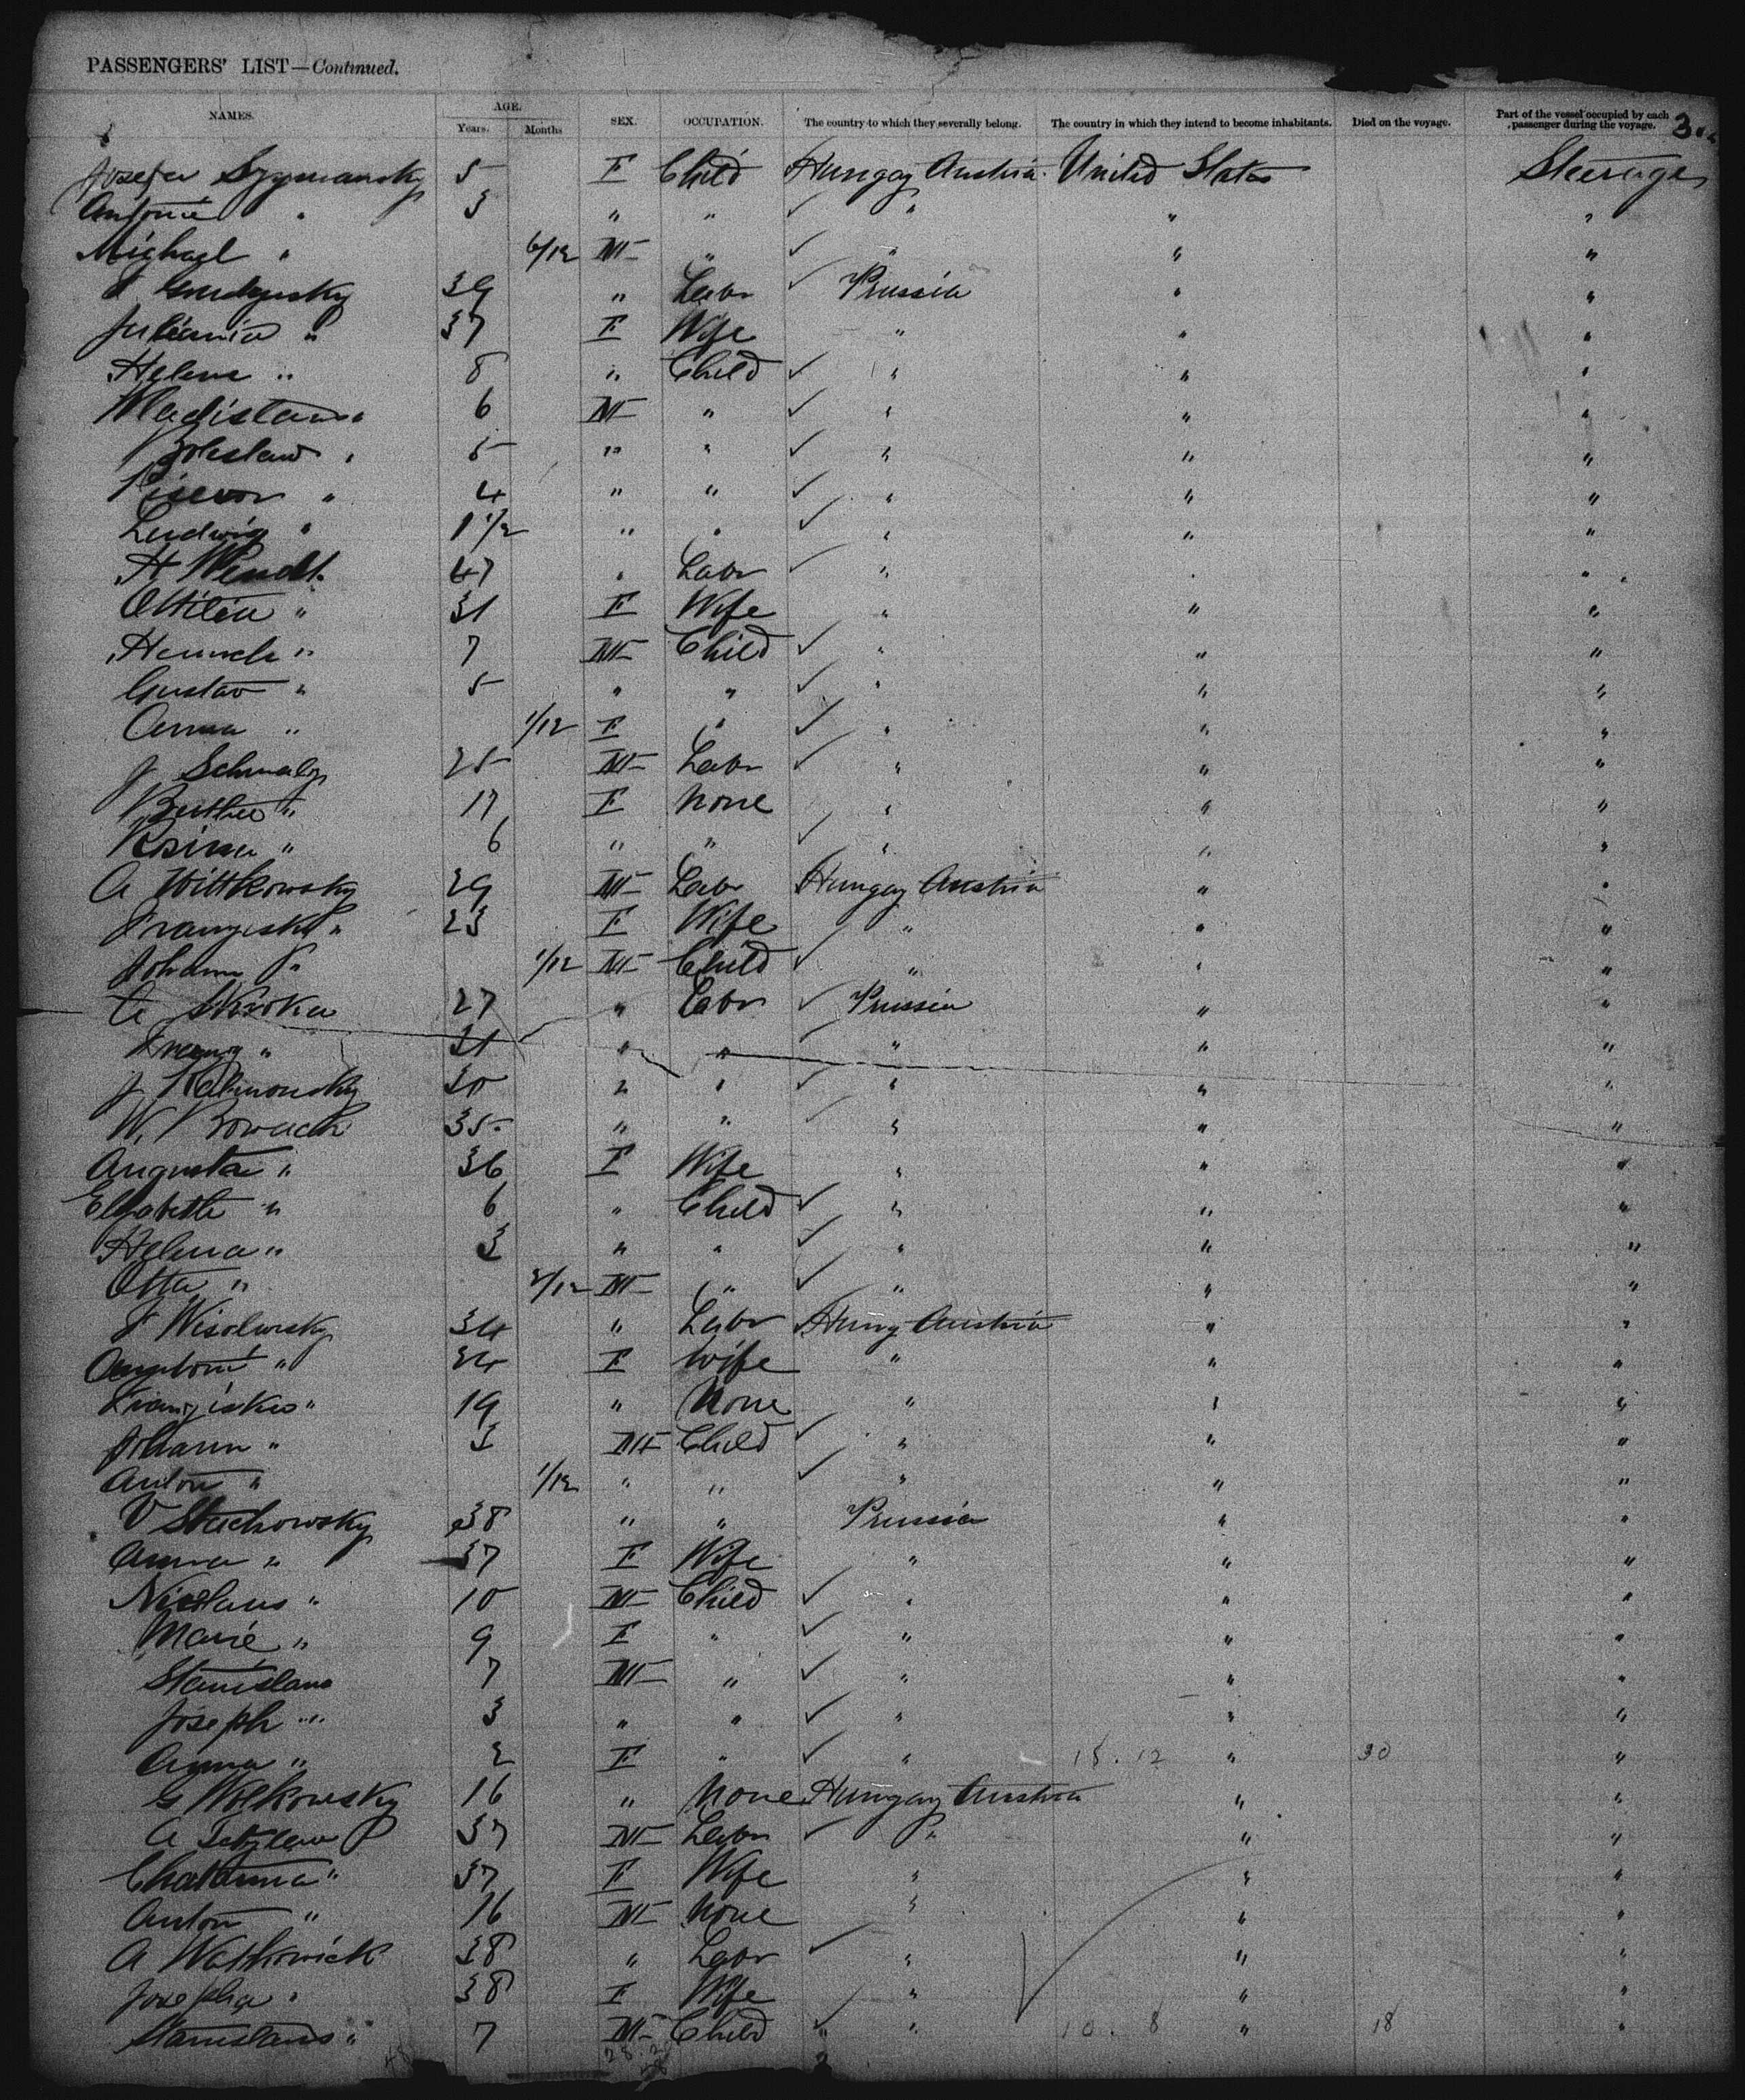 PASSENGERS' LIST—Continued.
NAMES. AGE. Years. Months SEX. OCCUPATION. The country to which they severally belong. The country in which they intend to become inhabitants. Died on the voyage. Part of the vessel occupied by each passenger during the voyage.
Josefa Szymansky 5 F Child Hungay Austria United States Steerage
Antonie " 3 " " " " "
Michael " 6/12 M " " " "
39 " Labr Prussia " "
Julianna " 37 F Wife " " "
Helene " 8 " Child " " "
Wladislaus " 6 M " " " "
Boleslaw " 5 " " " " "
" 4 " " " " "
Ludwig " 1 1/2 " " " " "
H Wendt 47 " Labr " " "
Ottilie " 31 F Wife " " "
Heinrich " 7 M Child " " "
Gustav " 5 " " " " "
Anna " 1/12 F " " " "
J Schmalz 25 M Labr " " "
Berthe " 17 F None " " "
Rosina " 6 " " " " "
A Wittkowsky 29 M Labr Hungay Austria " "
Franziska " 23 F Wife " " "
Johann " 1/12 M Child " " "
A 27 " Labr Prussia " "
Franz " 21 " " " " "
J 30 " " " " "
W. 35 " " " " "
Augusta " 36 F Wife " " "
Elisabeth " 6 " Child " " "
Helena " 3 " " " " "
Otto " 2/12 M " " " "
34 " Labr Hung Austria " "
" 24 F Wife " " "
Franziska " 19 " None " " "
Johann " 3 M Child " " "
Anton " 1/12 " " " " "
V Stachowsky 38 " " Prussia " "
Anna " 37 F Wife " " "
Nicolaus " 10 M Child " " "
Marie " 9 F " " " "
Stanislaus 7 M " " " "
Joseph " 3 " " " " "
Anna " 2 F " " 15.12 " 30 "
G Wolkowsky 16 " None Hungay Austria " "
A 37 M Labr " " "
" 37 F Wife " " "
Anton " 16 M None " " "
A 38 " Labr " " "
Josepha " 38 F Wife " " "
Stanislaus " 7 M Child " 10.8 " 18 "